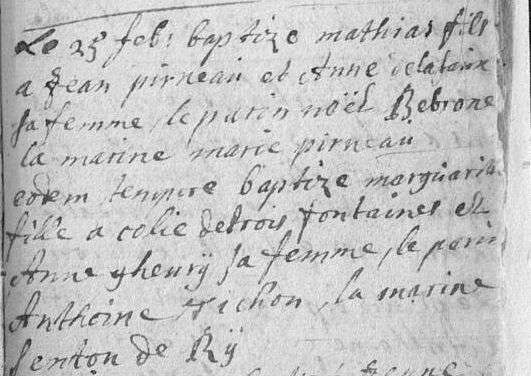 Le 25 feb: baptize mathias fils
a Jean pirneau et Anne delataux
sa femme, le patin noël Bebrone
la marine marie pirneau
eodem tempore baptize marguarite
fille a colie detrois fontaines et
Anne gheurÿ sa femme, le parin
Anthoine Tichon, la marine
Jenton de Rÿ